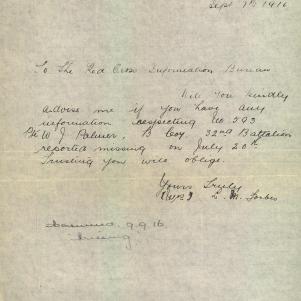 Sept 7th 1916
To The Red Cross Information Bureau
Will You kindly
advise me if you have any
information respecting No 593
Pte W. J. Palmer. B Coy. 32nd Battalion
reported missing on July 20th
Trusting you will oblige.
Yours Truly
L. M. Forbes
9.9.16.
Missing